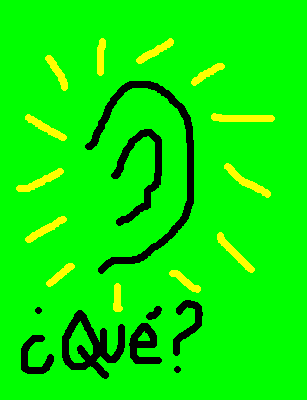 ¿Qué?